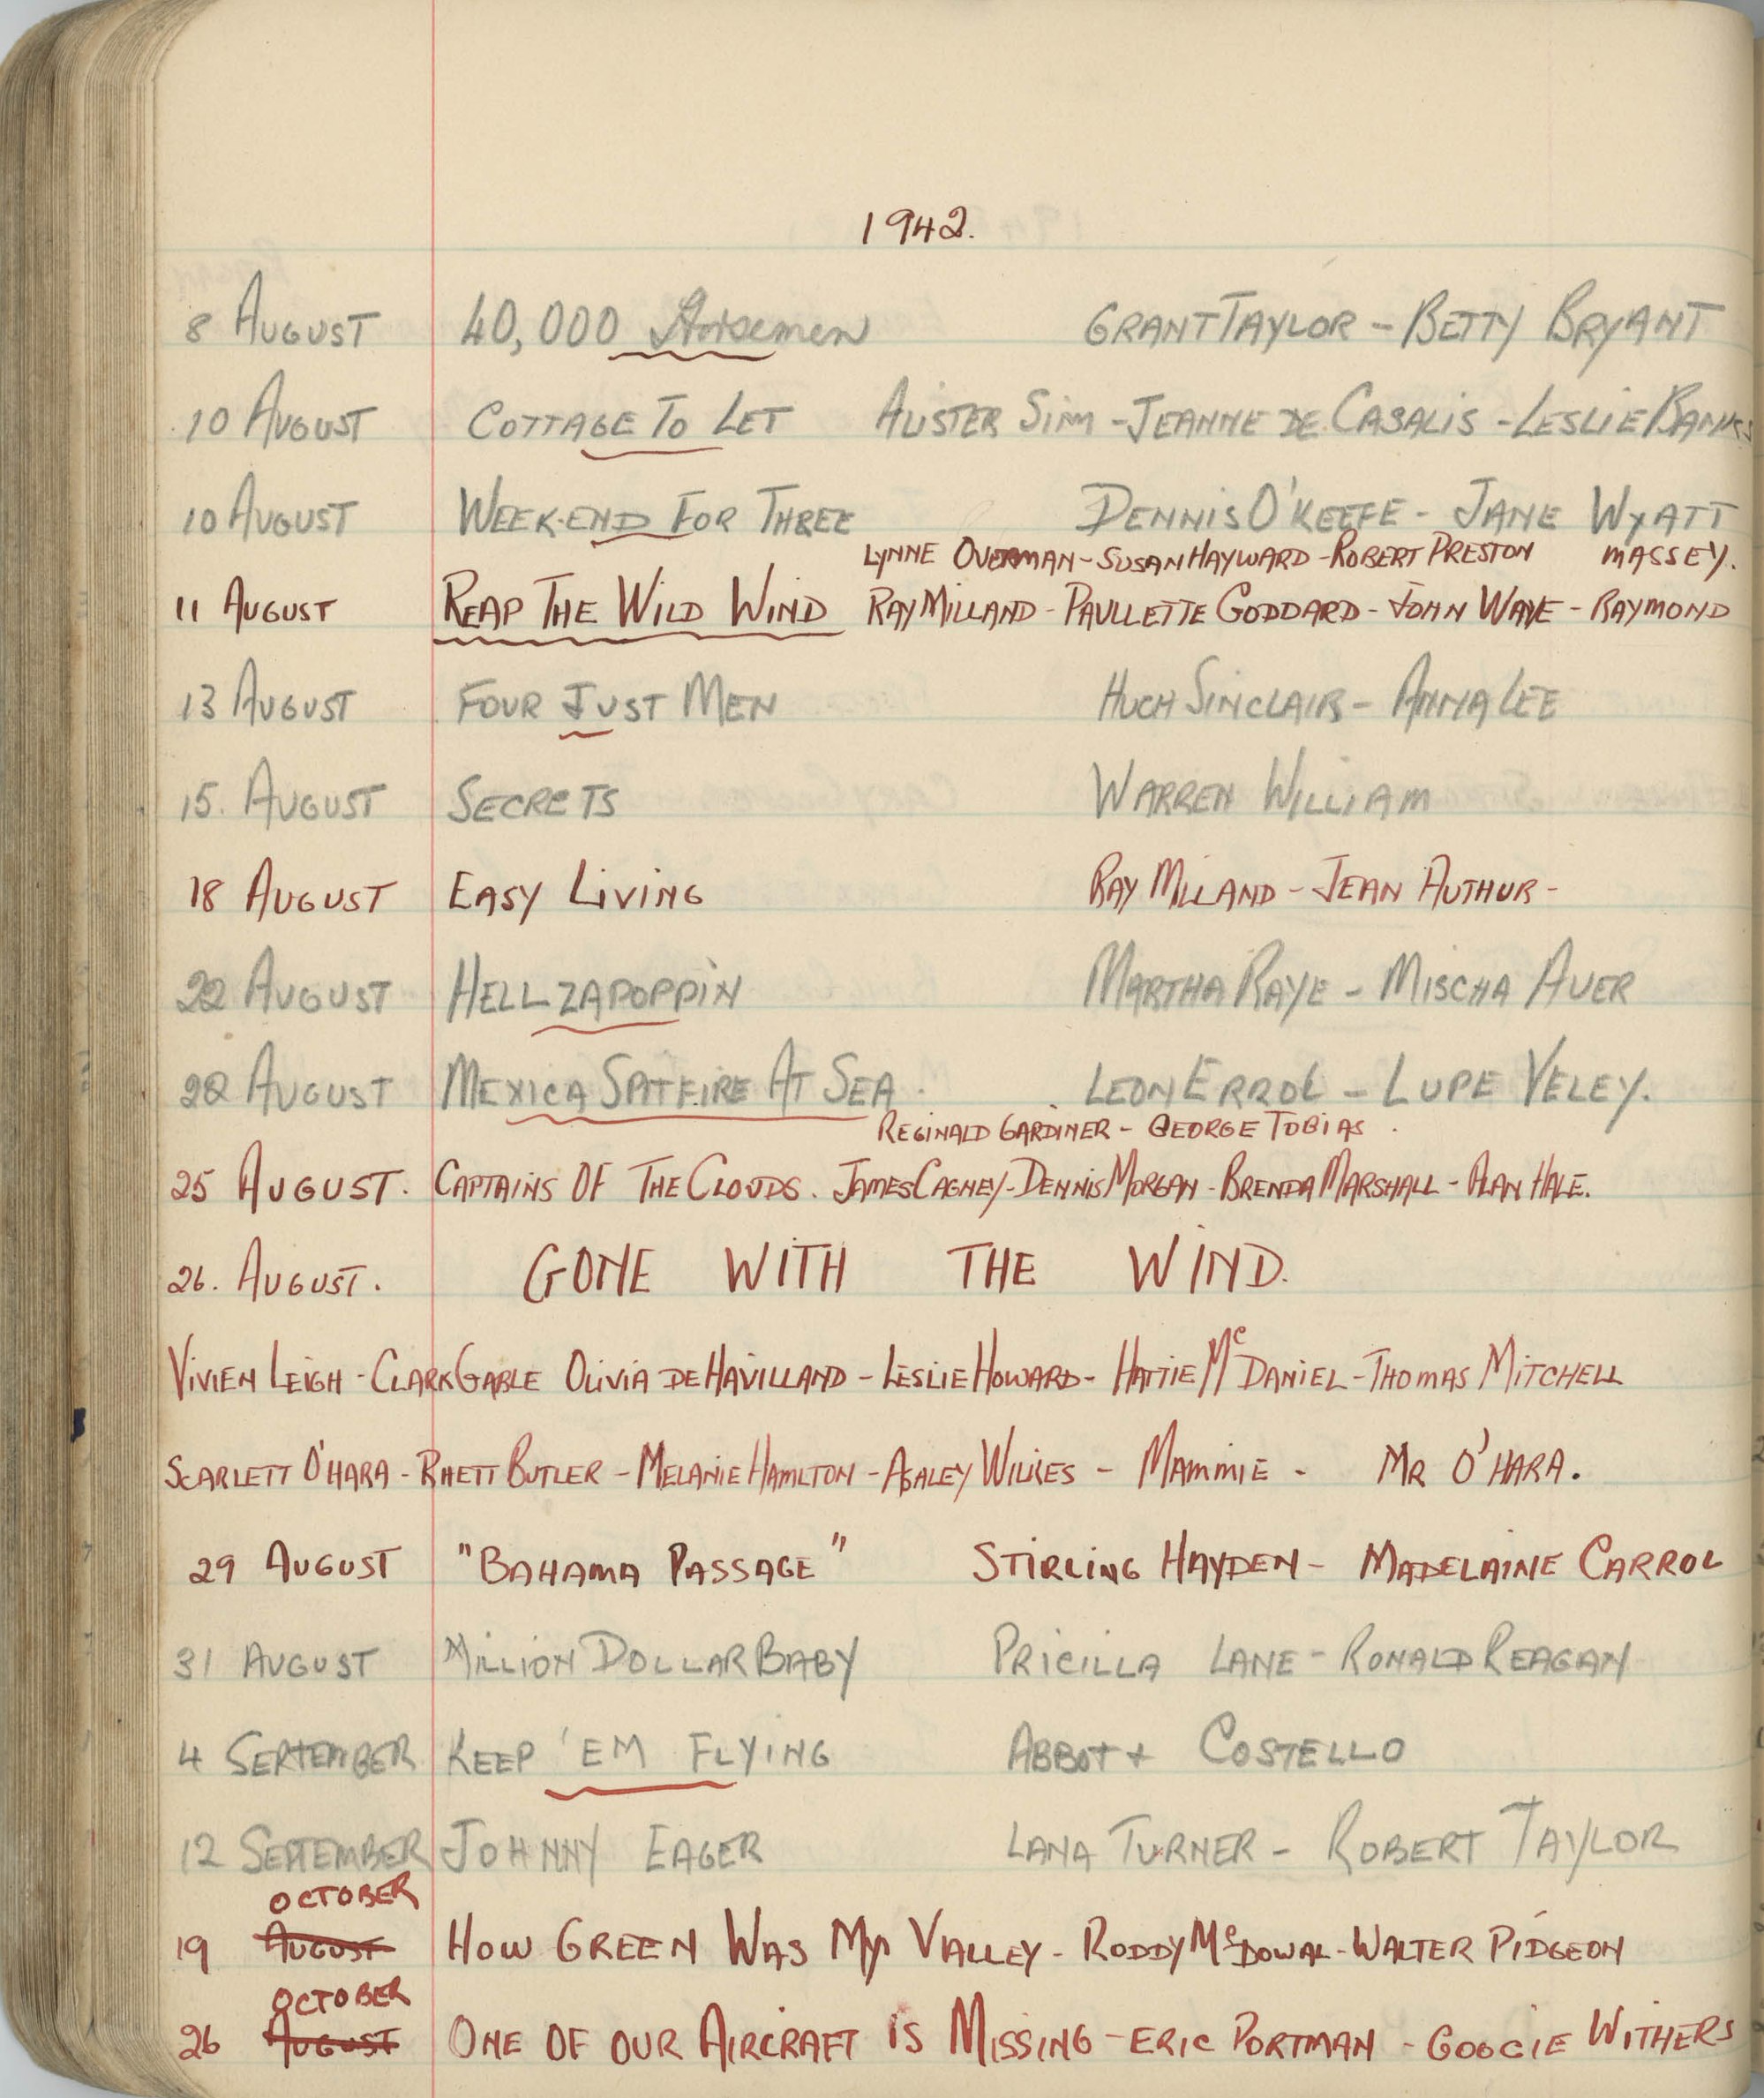 1942.
8 August 40,000 Horsemen Grant Taylor - Betty Bryant
10 August Cottage To Let Alister Sim - Jeanne de Casalis - Leslie Banks
10 August Week-end For Three Dennis O'Keefe - Jane Wyatt
Lynne Overman - Susan Hayward - Robert Preston Massey.
11 August Reap The Wild Wind Ray Milland - Paullette Goddard - John Wayne - Raymond
13 August Four Just Men Hugh Sinclair - Anna Lee
15. August Secrets Warren William
18 August Easy Living Ray Milland - Jean Authur -
22 August Hellzapoppin Martha Raye - Mischa Auer
22 August Mexica Spitfire At Sea. Leon Errol - Lupe Veley.
Reginald Gardiner - George Tobias.
25 August. Captains Of The Clouds. James Cagney - Dennis Morgan - Brenda Marshall - Alan Hale.
26. August. GONE WITH THE WIND.
Vivien Leigh - Clark Gable Olivia de Havilland - Leslie Howard - Hattie McDaniel - Thomas Mitchell
Scarlett O'Hara - Rhett Butler - Melanie Hamilton - Ashley Wilkes - Mammie - Mr O'Hara.
29 August "Bahama Passage" Stirling Hayden - Madelaine Carrol
31 August Million Dollar Baby Pricilla Lane - Ronald Reagan
4 September Keep 'Em Flying Abbot + Costello
12 September Johnny Eager Lana Turner - Robert Taylor
October
19 August How Green Was My Valley - Roddy McDowal - Walter Pidgeon
October
26 August One Of Our Aircraft is Missing - Eric Portman - Googie Withers